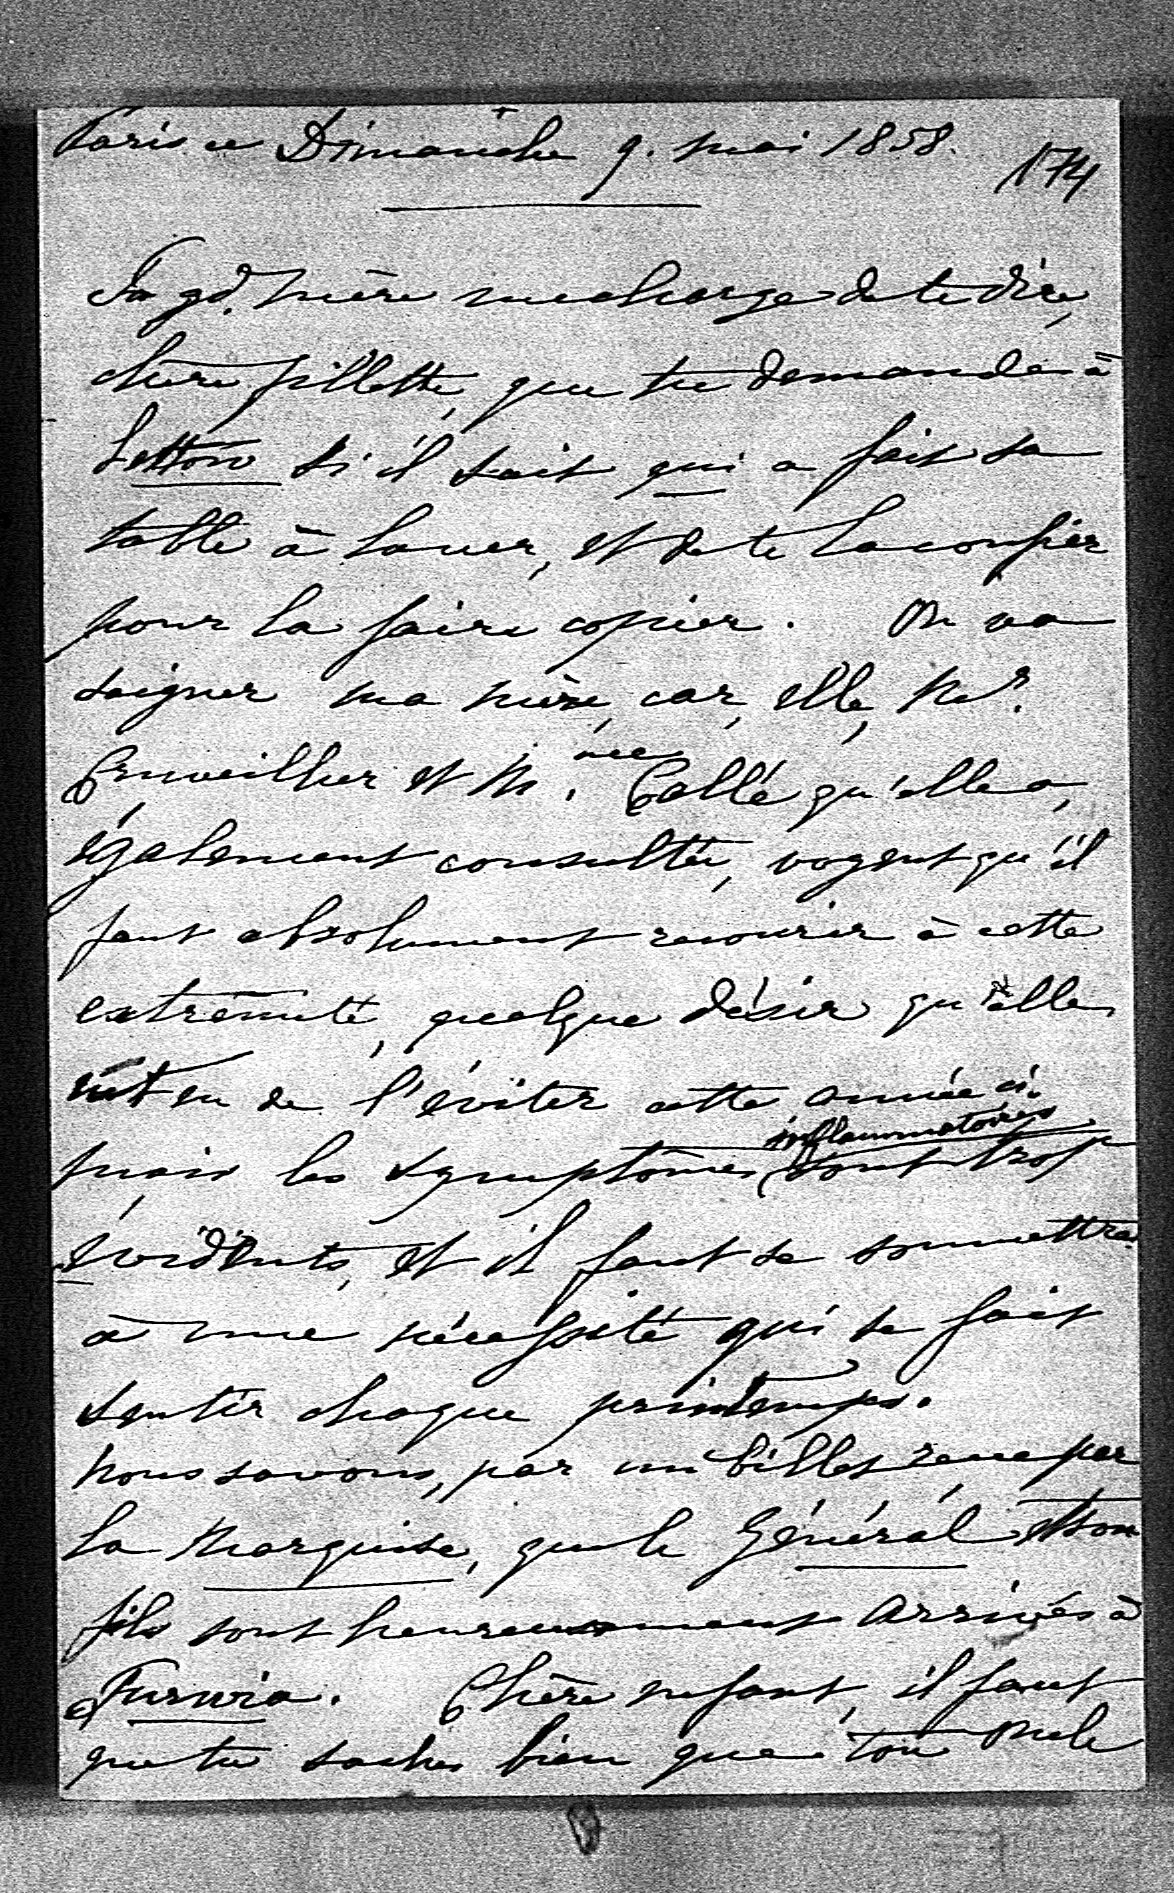 Paris ce Dimanche 9. mai 1858.
174
Ta gd. mère me charge de te dire,
chère fillette, que tu demandes à
si il sait qui a fait sa
table à laver, et de te la confier
pour la faire copier. On va
saigner ma mère, car, elle, Mr.
Cruveilher et M. Gallé qu'elle a,
également consultée, voyent qu'il
faut absolument recourir à cette
extrêmité, quelque désir qu'elle
eut eu de l'éviter cette année ci.
inflammatoires
mais les symptômes sont trop
évidents, et il faut se soumettre
à une nécessité qui se fait
sentir chaque printemps.
Nous savons, par un billet reçu par
la Marquise, que le Général et son
fils sont heureusement arrivés à
Chère enfant, il faut
que tu saches bien que ton oncle